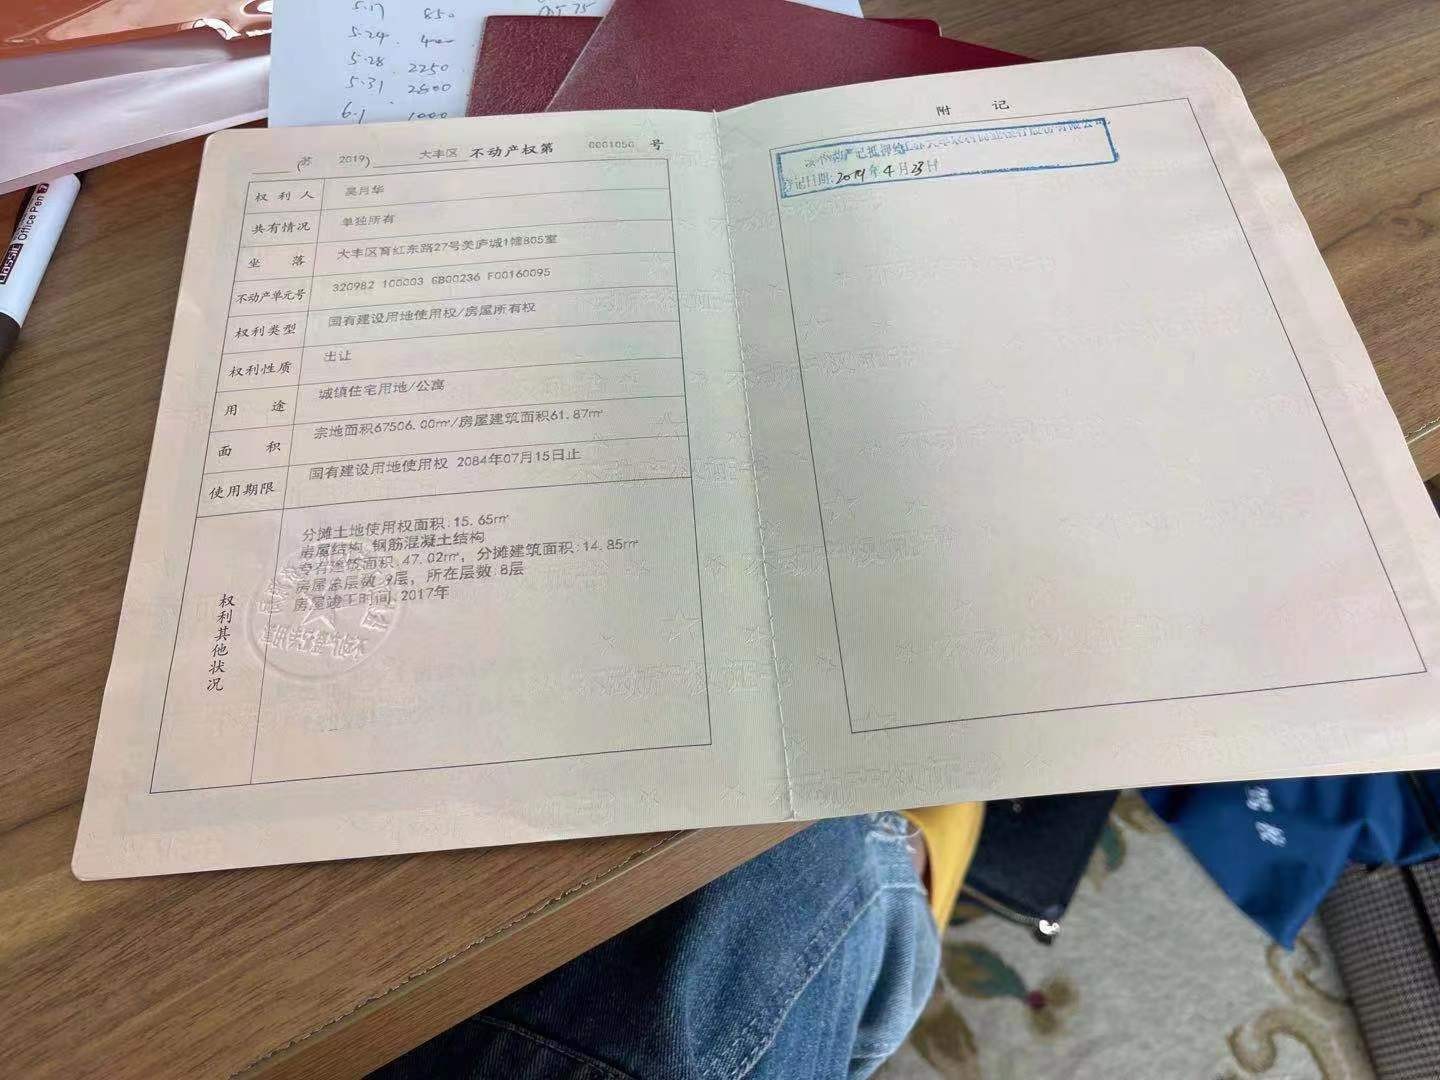 5.17 850
5.24
5.28 2250
5.31 2800
6.1 1000
Office Pen
(苏 2019) 大丰区 不动产权第 0001050 号
权利人 吴月华
共有情况 单独所有
坐落 大丰区育红东路27号美庐城1幢805室
不动产单元号 320982 100003 GB00236 F00160095
权利类型 国有建设用地使用权/房屋所有权
权利性质 出让
用途 城镇住宅用地/公寓
面积 宗地面积67506.00㎡/房屋建筑面积61.87㎡
使用期限 国有建设用地使用权 2084年07月15日止
权利其他状况
分摊土地使用权面积:15.65㎡
房屋结构:钢筋混凝土结构
专有建筑面积:47.02㎡, 分摊建筑面积:14.85㎡
房屋总层数:9层, 所在层数:8层
房屋竣工时间:2017年
附记
该不动产已抵押给江苏大丰农村商业银行股份有限公司
登记日期:2019年4月23日